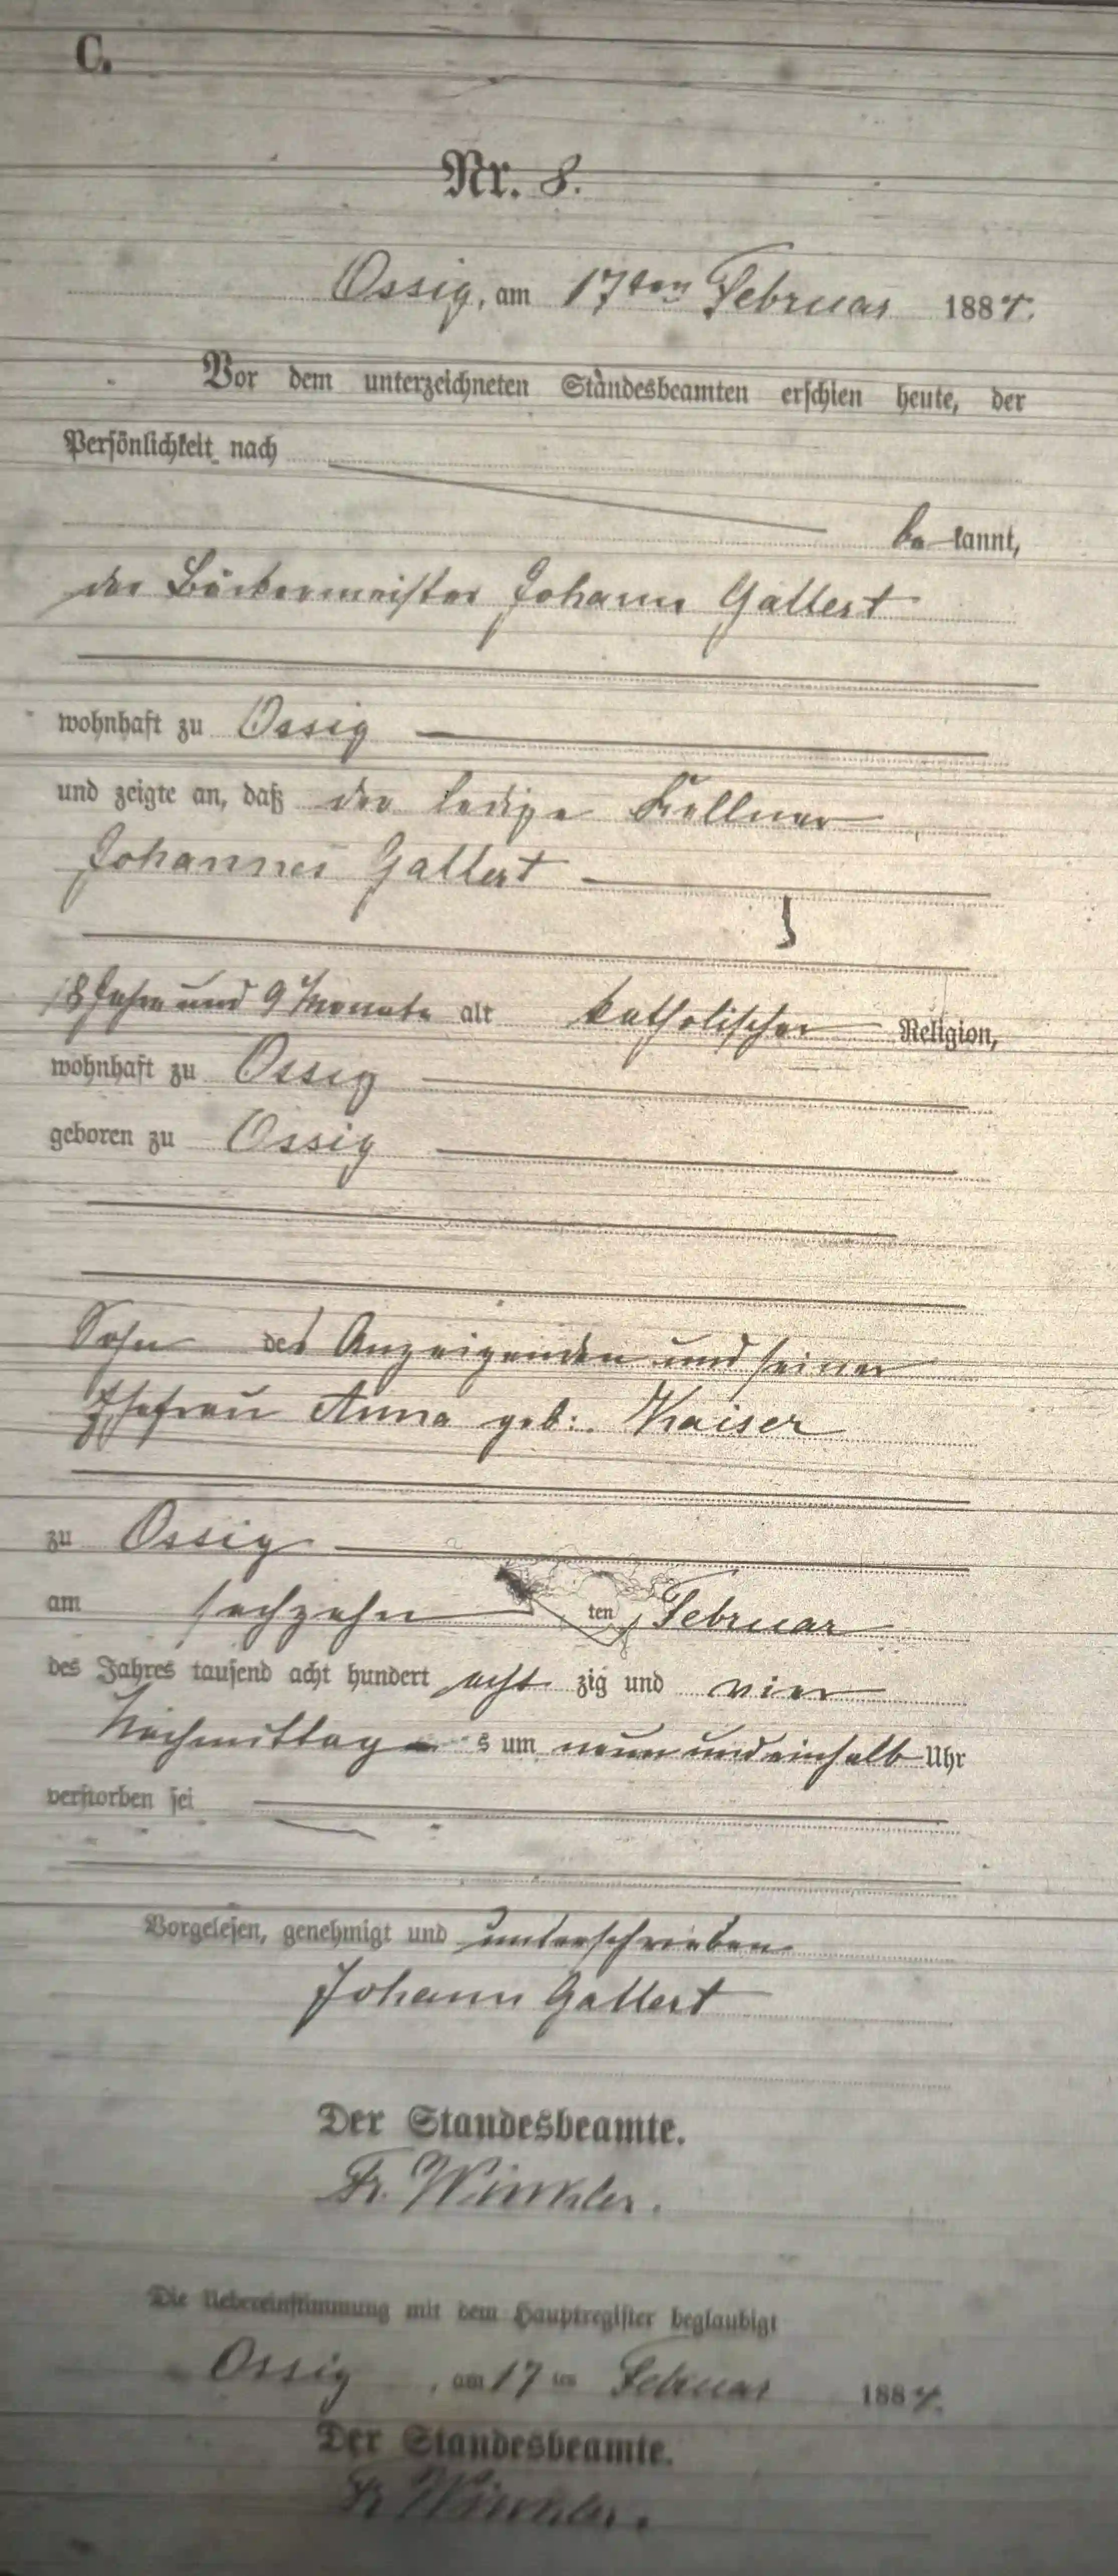 C.
Nr. 8.
Ossig, am 17ten Februar 1884.
Vor dem unterzeichneten Standesbeamten erschien heute, der
Persönlichkeit nach
be kannt,
der Bäckermeister Johann Gallert
wohnhaft zu Ossig
und zeigte an, daß der ledige Kellner
Johannes Gallert
18 Jahre und 9 Monate alt katholischer Religion,
wohnhaft zu Ossig
geboren zu Ossig
Sohn des Anzeigenden und seiner
Ehefrau Anna geb: Kaiser
zu Ossig
am sechzehn ten Februar
des Jahres tausend acht hundert acht zig und vier
Nachmittag s um neun und einhalb Uhr
verstorben sei
Vorgelesen, genehmigt und unterschrieben
Johann Gallert
Der Standesbeamte.
Fr. Winkler.
Die Uebereinstimmung mit dem Hauptregister beglaubigt
Ossig, am 17 ten Februar 1884.
Der Standesbeamte.
Fr Winkler.